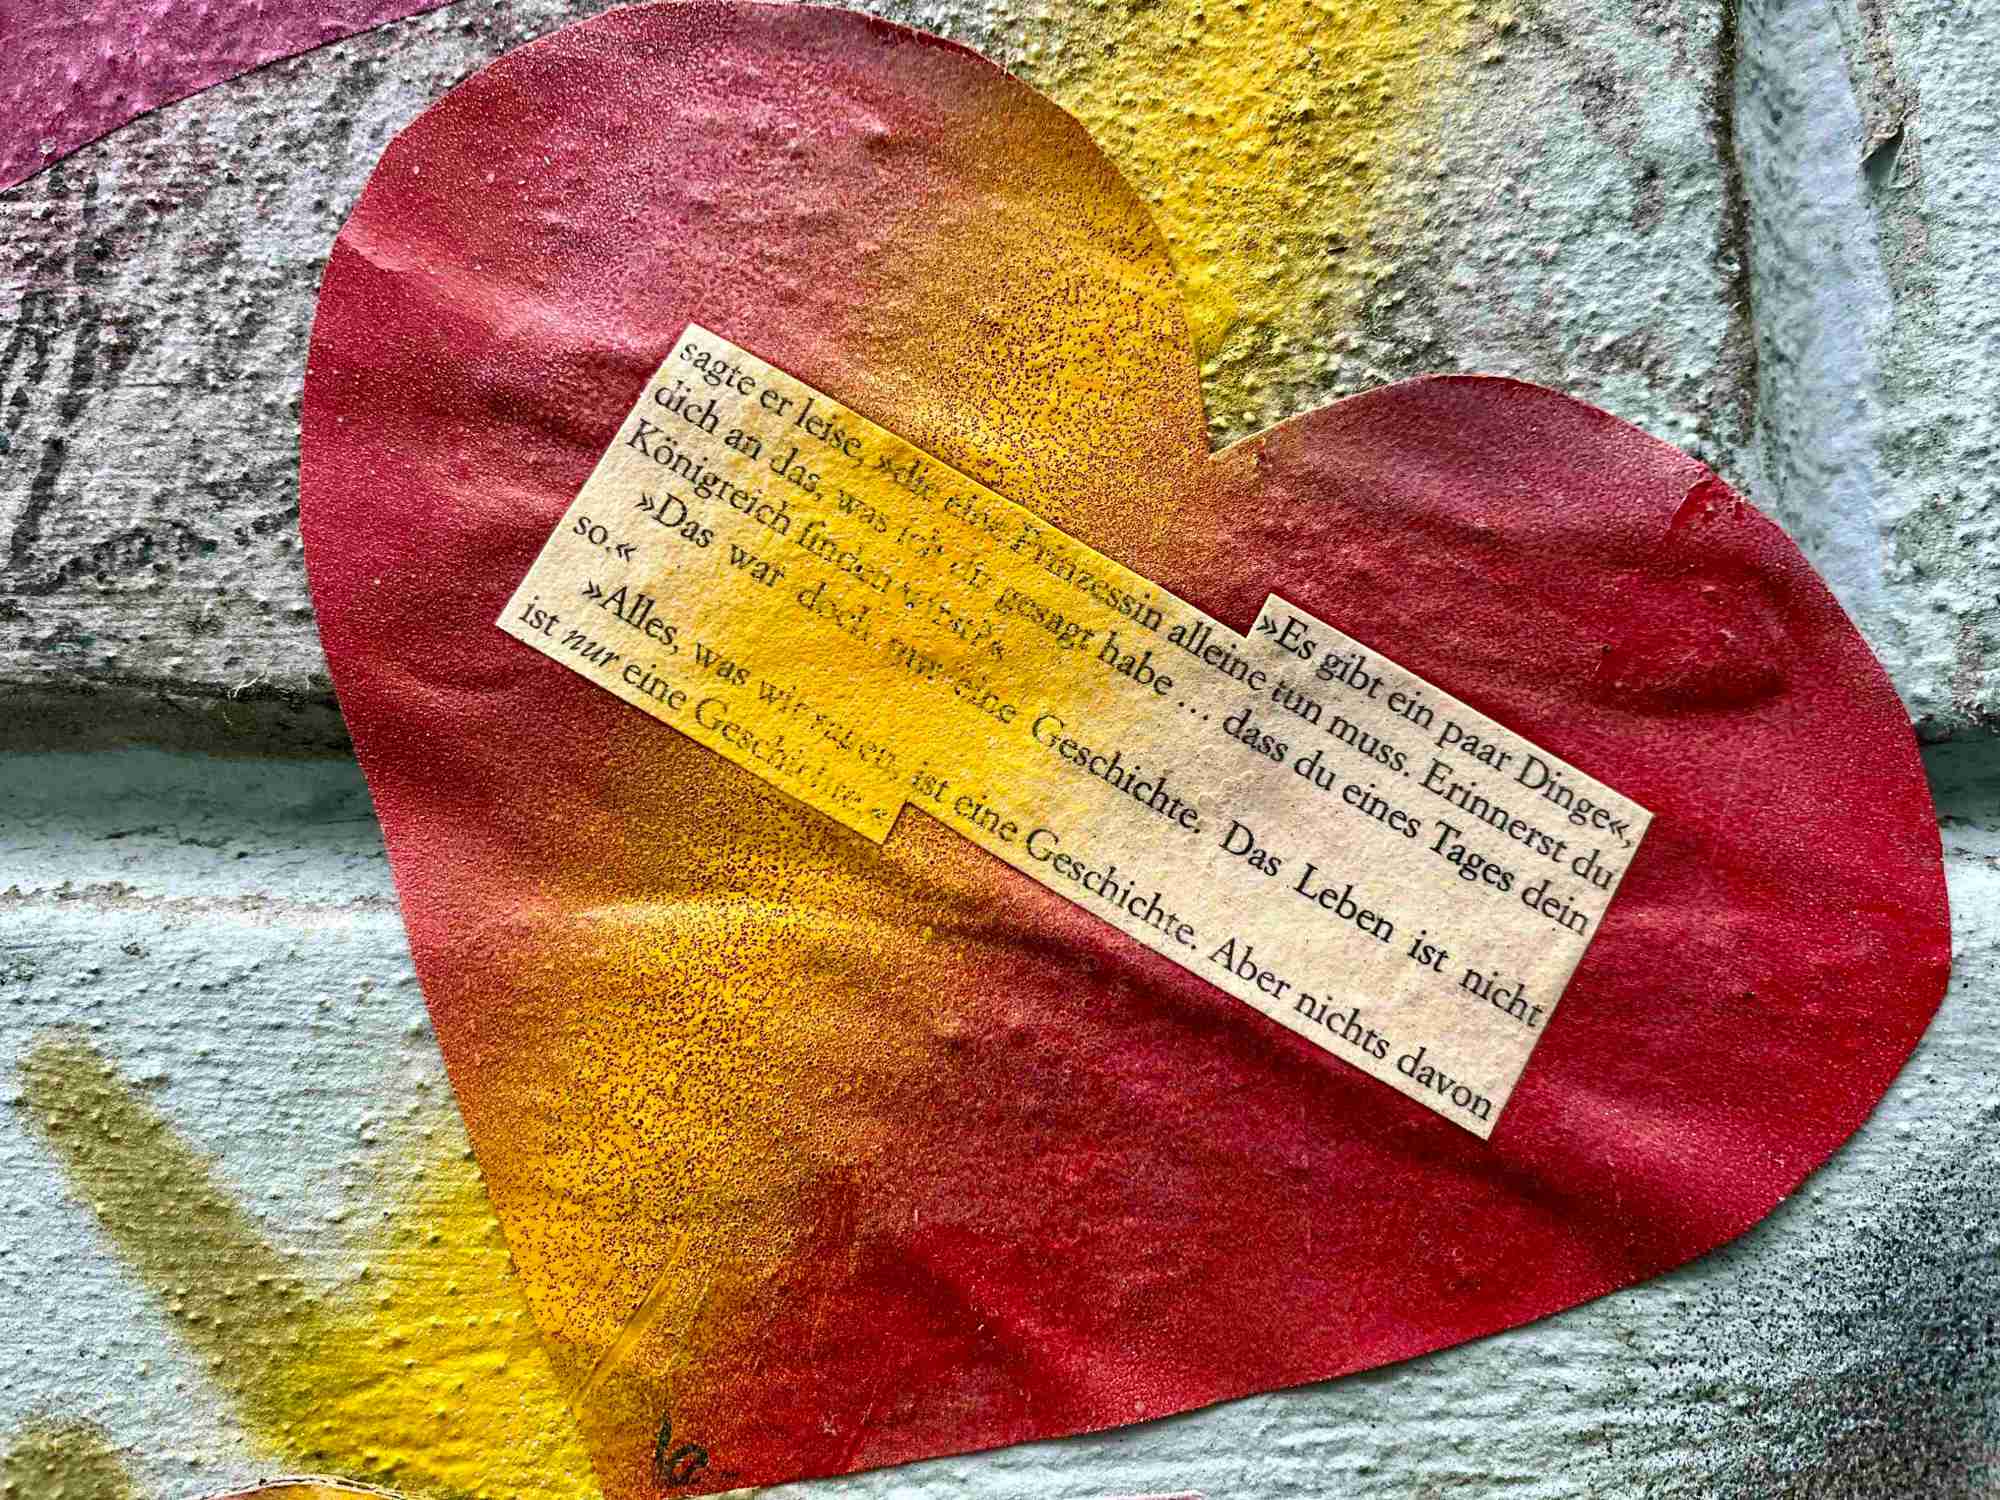 »Es gibt ein paar Dinge«,
sagte er leise, »die eine Prinzessin alleine tun muss. Erinnerst du
dich an das, was ich dir gesagt habe … dass du eines Tages dein
Königreich finden wirst?«
»Das war doch nur eine Geschichte. Das Leben ist nicht
so.«
»Alles, was wir sagen, ist eine Geschichte. Aber nichts davon
ist nur eine Geschichte.«